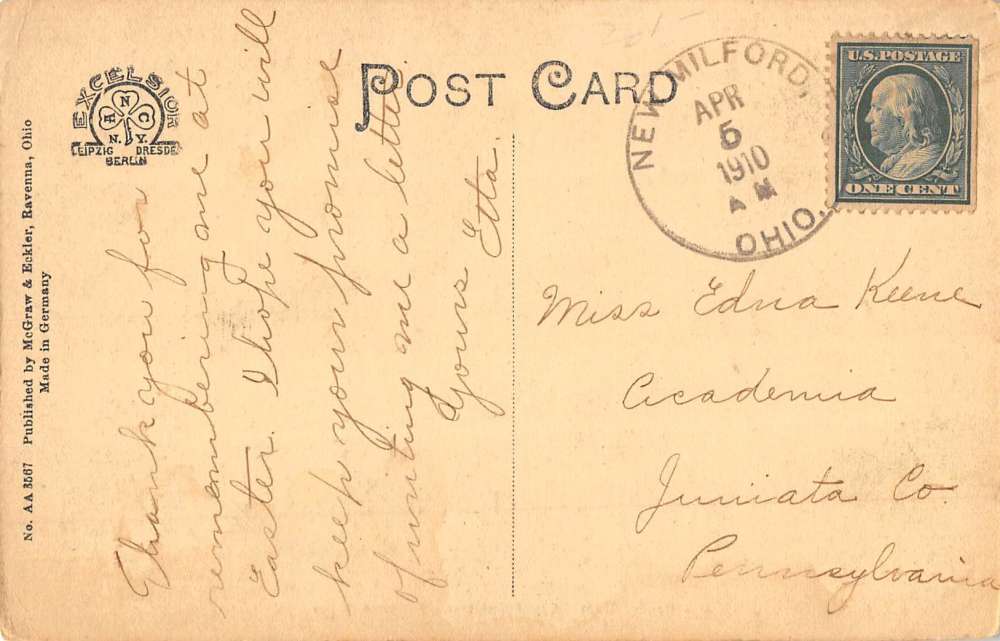 POST CARD
EXCELSIOR
A N C
N. Y.
LEIPZIG DRESDEN
BERLIN
No. AA 3567 Published by McGraw & Eckler, Ravenna, Ohio
Made in Germany
NEW MILFORD,
APR
5
1910
AM
OHIO.
U.S. POSTAGE
ONE CENT
Thank you for
remembering me at
Easter. I hope you will
keep your promise
of writing me a letter
Yours Etta.
Miss Edna Keene
Academia
Juniata Co.
Pennsylvania